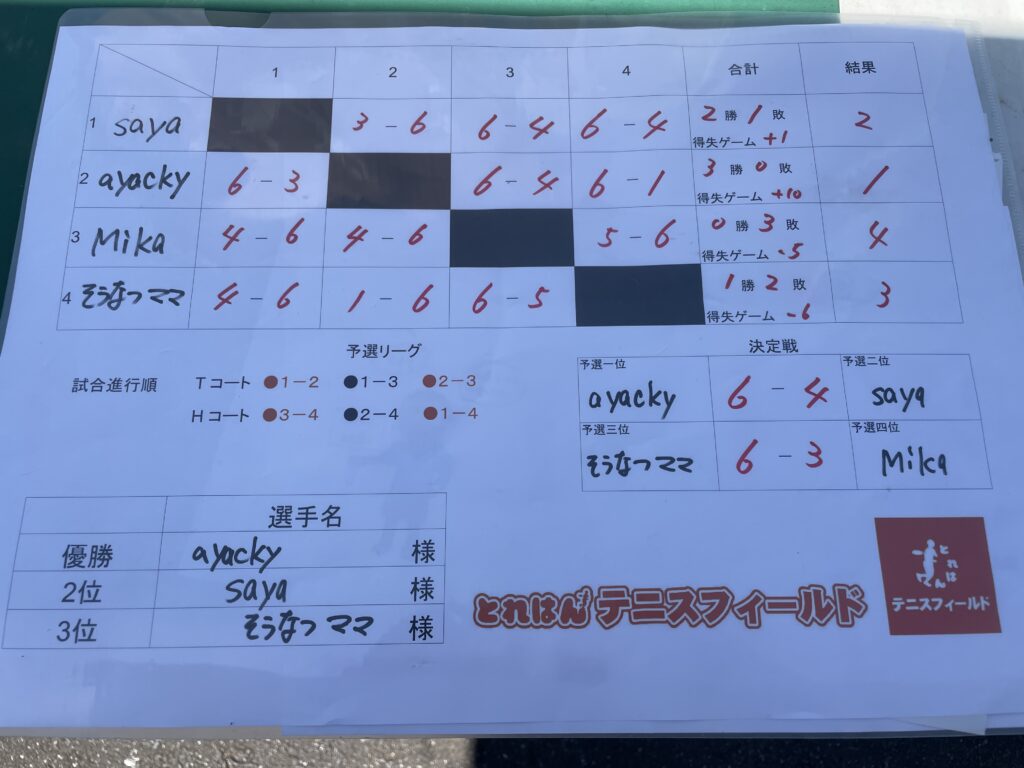 1 2 3 4 合計 結果
1 saya 3 - 6 6 - 4 6 - 4 2 勝 1 敗 得失ゲーム +1 2
2 ayacky 6 - 3 6 - 4 6 - 1 3 勝 0 敗 得失ゲーム +10 1
3 Mika 4 - 6 4 - 6 5 - 6 0 勝 3 敗 得失ゲーム -5 4
4 そうなつママ 4 - 6 1 - 6 6 - 5 1 勝 2 敗 得失ゲーム -6 3
予選リーグ
試合進行順 Tコート ●1-2 ●1-3 ●2-3
Hコート ●3-4 ●2-4 ●1-4
決定戦
予選一位 ayacky 6 - 4 予選二位 saya
予選三位 そうなつママ 6 - 3 予選四位 Mika
選手名
優勝 ayacky 様
2位 saya 様
3位 そうなつママ 様
とれはんテニスフィールド
とれはん
テニスフィールド